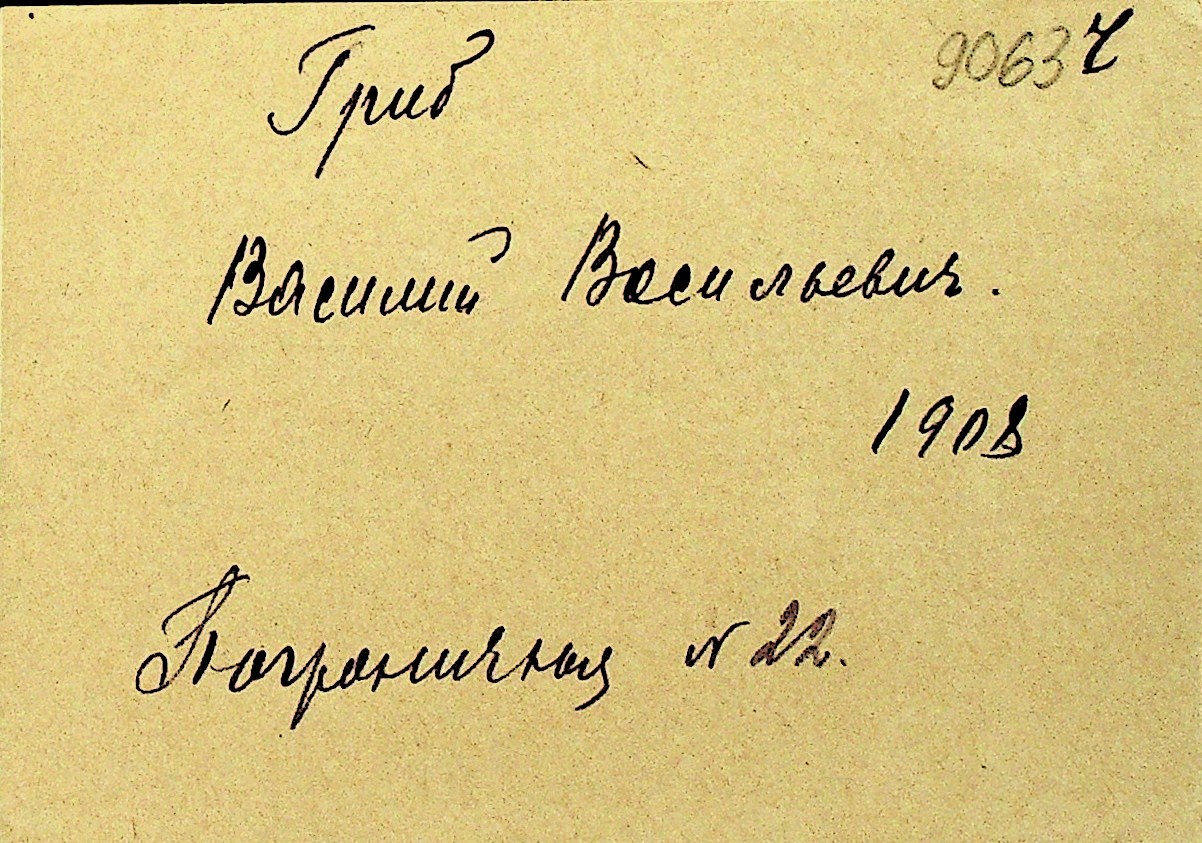 90634
Гриб
Василий Васильевич.
1908
Пограничная № 22.